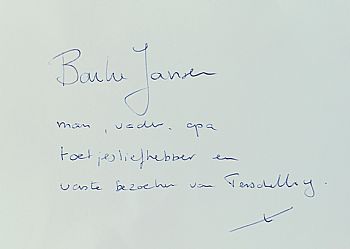 Bauke Jansen
man, vader, opa
toetjesliefhebber en
vaste bezoeker van Terschelling.